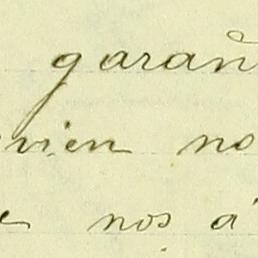 garañ
vien no
e nos á